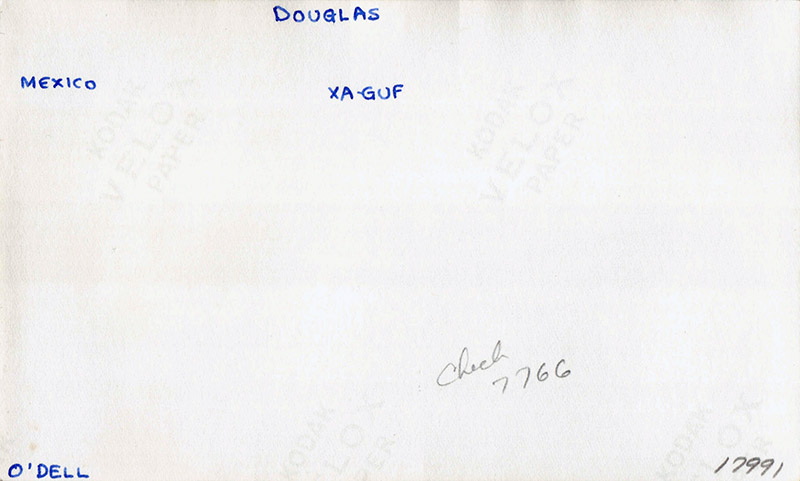 DOUGLAS
MEXICO
XA-GUF
KODAK
VELOX
PAPER
KODAK
VELOX
PAPER
Check
7766
KODAK
VELOX
PAPER
KODAK
VELOX
PAPER
O'DELL
17991